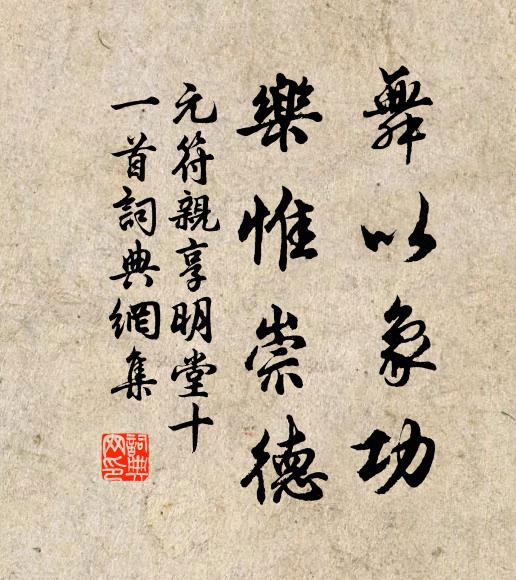 舞以象功
樂惟崇德
元符親享明堂十
一首詞典網集
詞典
网印